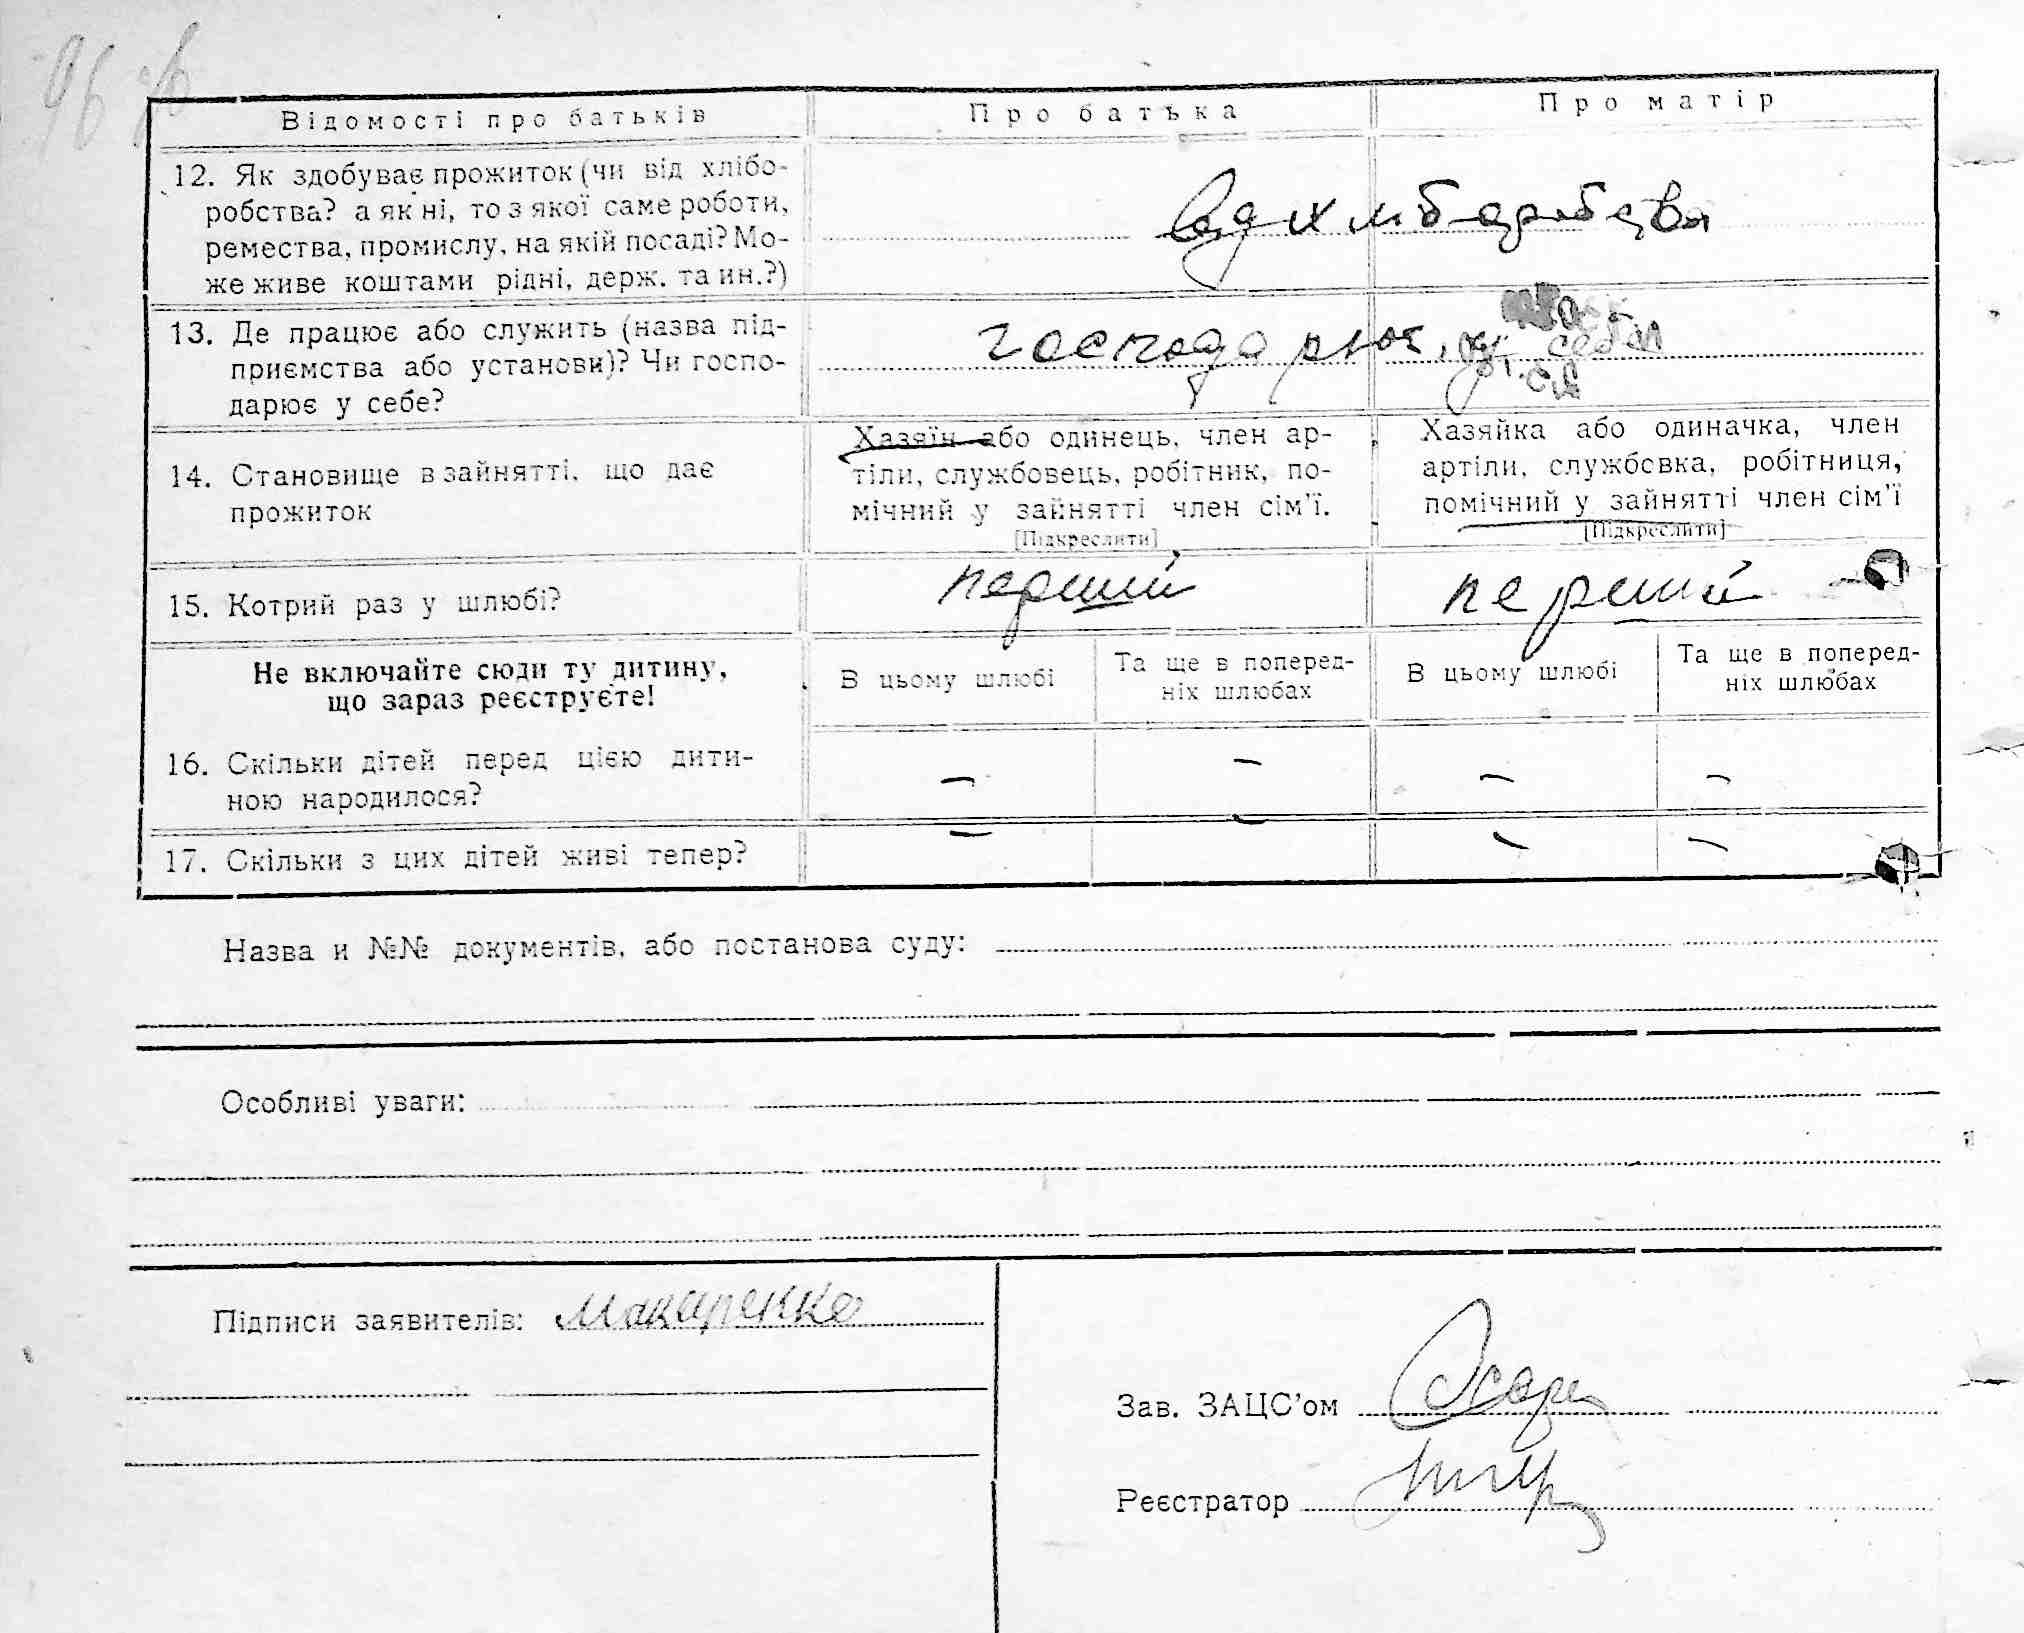 Відомості про батьків
Про батька
Про матір
12. Як здобуває прожиток (чи від хлібо-
робства? а як ні, то з якої саме роботи,
ремества, промислу, на якій посаді? Мо-
же живе коштами рідні, держ. та ин.?)
від хлібаробства
13. Де працює або служить (назва під-
приємства або установи)? Чи госпо-
дарює у себе?
господарює, у себе
14. Становище в зайнятті, що дає
прожиток
Хазяїн або одинець, член ар-
тіли, службовець, робітник, по-
мічний у зайнятті член сім'ї.
[Підкреслити]
Хазяйка або одиначка, член
артіли, службовка, робітниця,
помічний у зайнятті член сім'ї
[Підкреслити]
15. Котрий раз у шлюбі?
перший
перший
Не включайте сюди ту дитину,
що зараз реєструєте!
В цьому шлюбі
Та ще в поперед-
ніх шлюбах
В цьому шлюбі
Та ще в поперед-
ніх шлюбах
16. Скільки дітей перед цією дити-
ною народилося?
– – – –
17. Скільки з цих дітей живі тепер?
– – – –
Назва и №№ документів, або постанова суду:
Особливі уваги:
Підписи заявителів: Макаренко
Зав. ЗАЦС'ом
Реєстратор